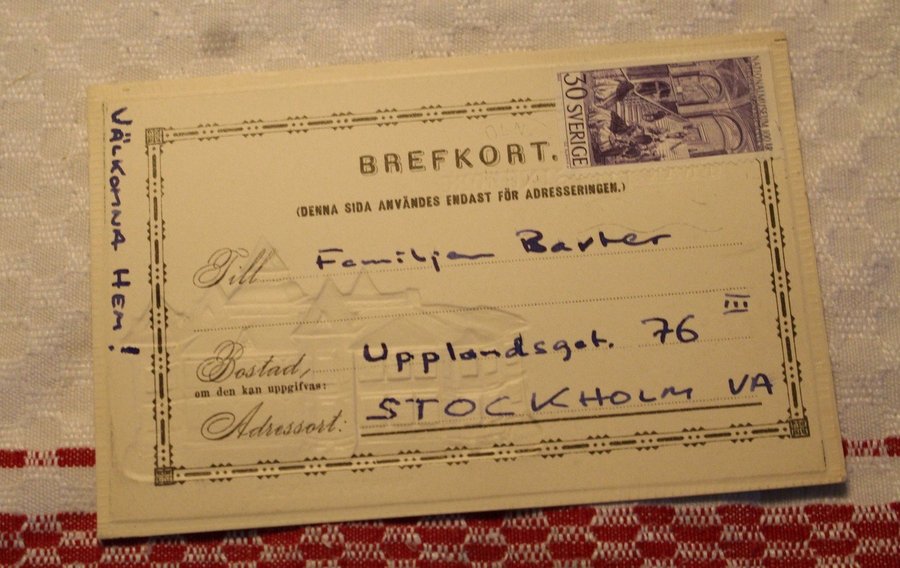 VÄLKOMNA HEM!
30 SVERIGE
BREFKORT.
(DENNA SIDA ANVÄNDES ENDAST FÖR ADRESSERINGEN.)
Till Familjen
III
Bostad, Upplandsgat. 76
om den kan uppgifvas:
Adressort: STOCKHOLM VA